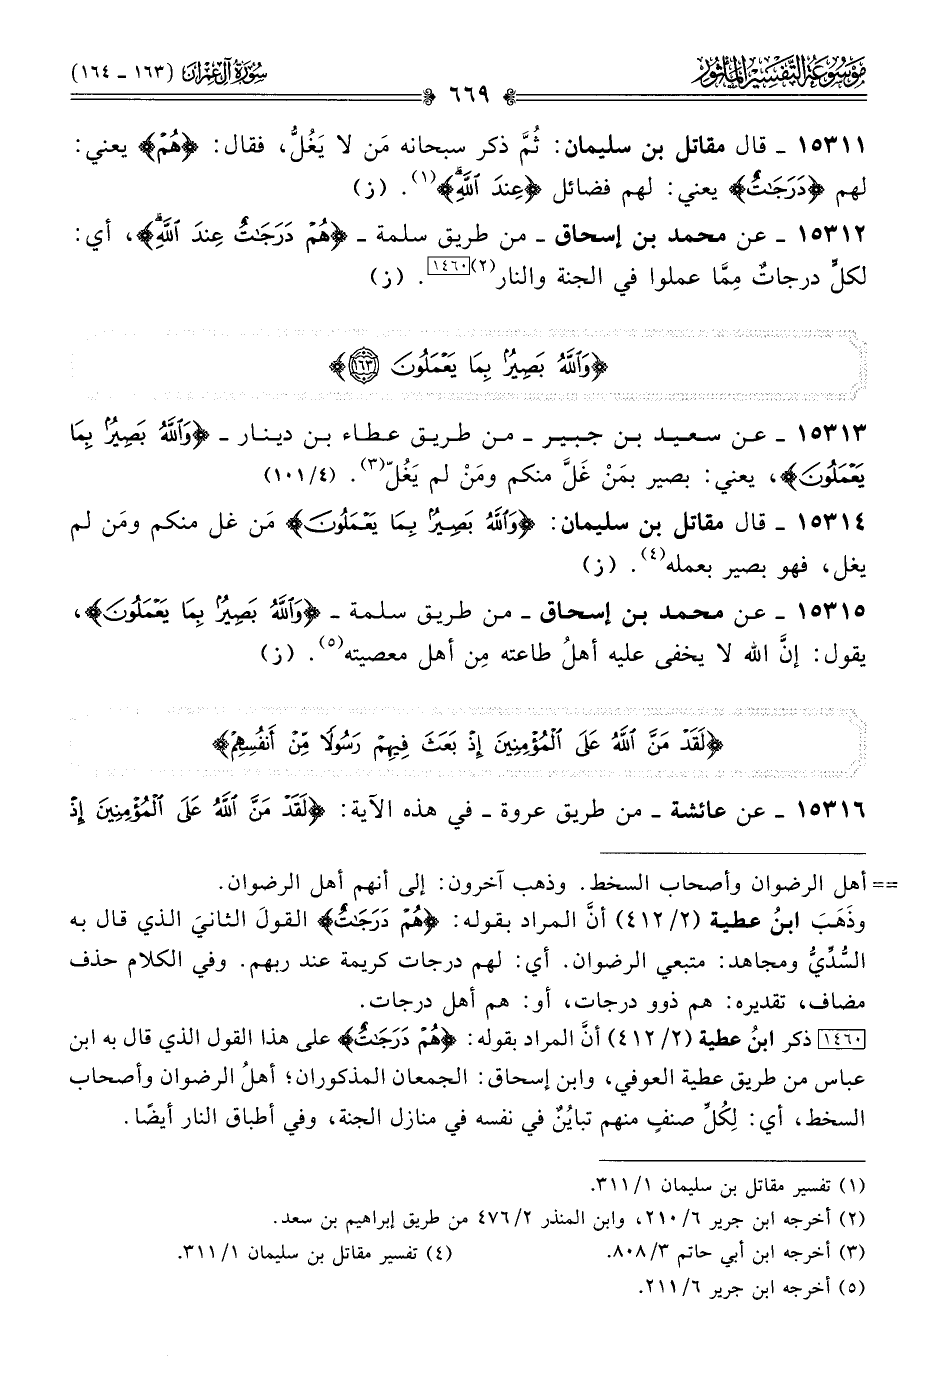 مَوْسُوعَة التَّفْسِير المَأْثُور
سُورَةُ آلِ عِمْرَان (١٦٣ - ١٦٤)
٦٦٩
١٥٣١١ - قال مقاتل بن سليمان: ثُمَّ ذكر سبحانه مَن لا يَغُلُّ، فقال: ﴿هُمْ﴾ يعني:
لهم ﴿دَرَجَٰتٌ﴾ يعني: لهم فضائل ﴿عِندَ ٱللَّهِۗ﴾(١). (ز)
١٥٣١٢ - عن محمد بن إسحاق - من طريق سلمة - ﴿هُمْ دَرَجَٰتٌ عِندَ ٱللَّهِۗ﴾، أي:
لكلٍّ درجاتٌ مِمَّا عملوا في الجنة والنار(٢)[١٤٦٠]. (ز)
﴿وَٱللَّهُ بَصِيرٌۢ بِمَا يَعْمَلُونَ ١٦٣﴾
١٥٣١٣ - عن سعيد بن جبير - من طريق عطاء بن دينار - ﴿وَٱللَّهُ بَصِيرٌۢ بِمَا
يَعْمَلُونَ﴾، يعني: بصير بمَنْ غَلَّ منكم ومَنْ لم يَغُلّ(٣). (١٠١/٤)
١٥٣١٤ - قال مقاتل بن سليمان: ﴿وَٱللَّهُ بَصِيرٌۢ بِمَا يَعْمَلُونَ﴾ مَن غل منكم ومَن لم
يغل، فهو بصير بعمله(٤). (ز)
١٥٣١٥ - عن محمد بن إسحاق - من طريق سلمة - ﴿وَٱللَّهُ بَصِيرٌۢ بِمَا يَعْمَلُونَ﴾،
يقول: إنَّ الله لا يخفى عليه أهلُ طاعته مِن أهل معصيته(٥). (ز)
﴿لَقَدْ مَنَّ ٱللَّهُ عَلَى ٱلْمُؤْمِنِينَ إِذْ بَعَثَ فِيهِمْ رَسُولًا مِّنْ أَنفُسِهِمْ﴾
١٥٣١٦ - عن عائشة - من طريق عروة - في هذه الآية: ﴿لَقَدْ مَنَّ ٱللَّهُ عَلَى ٱلْمُؤْمِنِينَ إِذْ
== أهل الرضوان وأصحاب السخط. وذهب آخرون: إلى أنهم أهل الرضوان.
وذَهَبَ ابنُ عطية (٤١٢/٢) أنَّ المراد بقوله: ﴿هُمْ دَرَجَٰتٌ﴾ القولَ الثانيَ الذي قال به
السُّدِّيُّ ومجاهد: متبعي الرضوان. أي: لهم درجات كريمة عند ربهم. وفي الكلام حذف
مضاف، تقديره: هم ذوو درجات، أو: هم أهل درجات.
[١٤٦٠] ذكر ابنُ عطية (٤١٢/٢) أنَّ المراد بقوله: ﴿هُمْ دَرَجَٰتٌ﴾ على هذا القول الذي قال به ابن
عباس من طريق عطية العوفي، وابن إسحاق: الجمعان المذكوران؛ أهلُ الرضوان وأصحاب
السخط، أي: لِكُلِّ صنفٍ منهم تبايُنٌ في نفسه في منازل الجنة، وفي أطباق النار أيضًا.
(١) تفسير مقاتل بن سليمان ٣١١/١.
(٢) أخرجه ابن جرير ٢١٠/٦، وابن المنذر ٤٧٦/٢ من طريق إبراهيم بن سعد.
(٣) أخرجه ابن أبي حاتم ٨٠٨/٣. (٤) تفسير مقاتل بن سليمان ٣١١/١.
(٥) أخرجه ابن جرير ٢١١/٦.